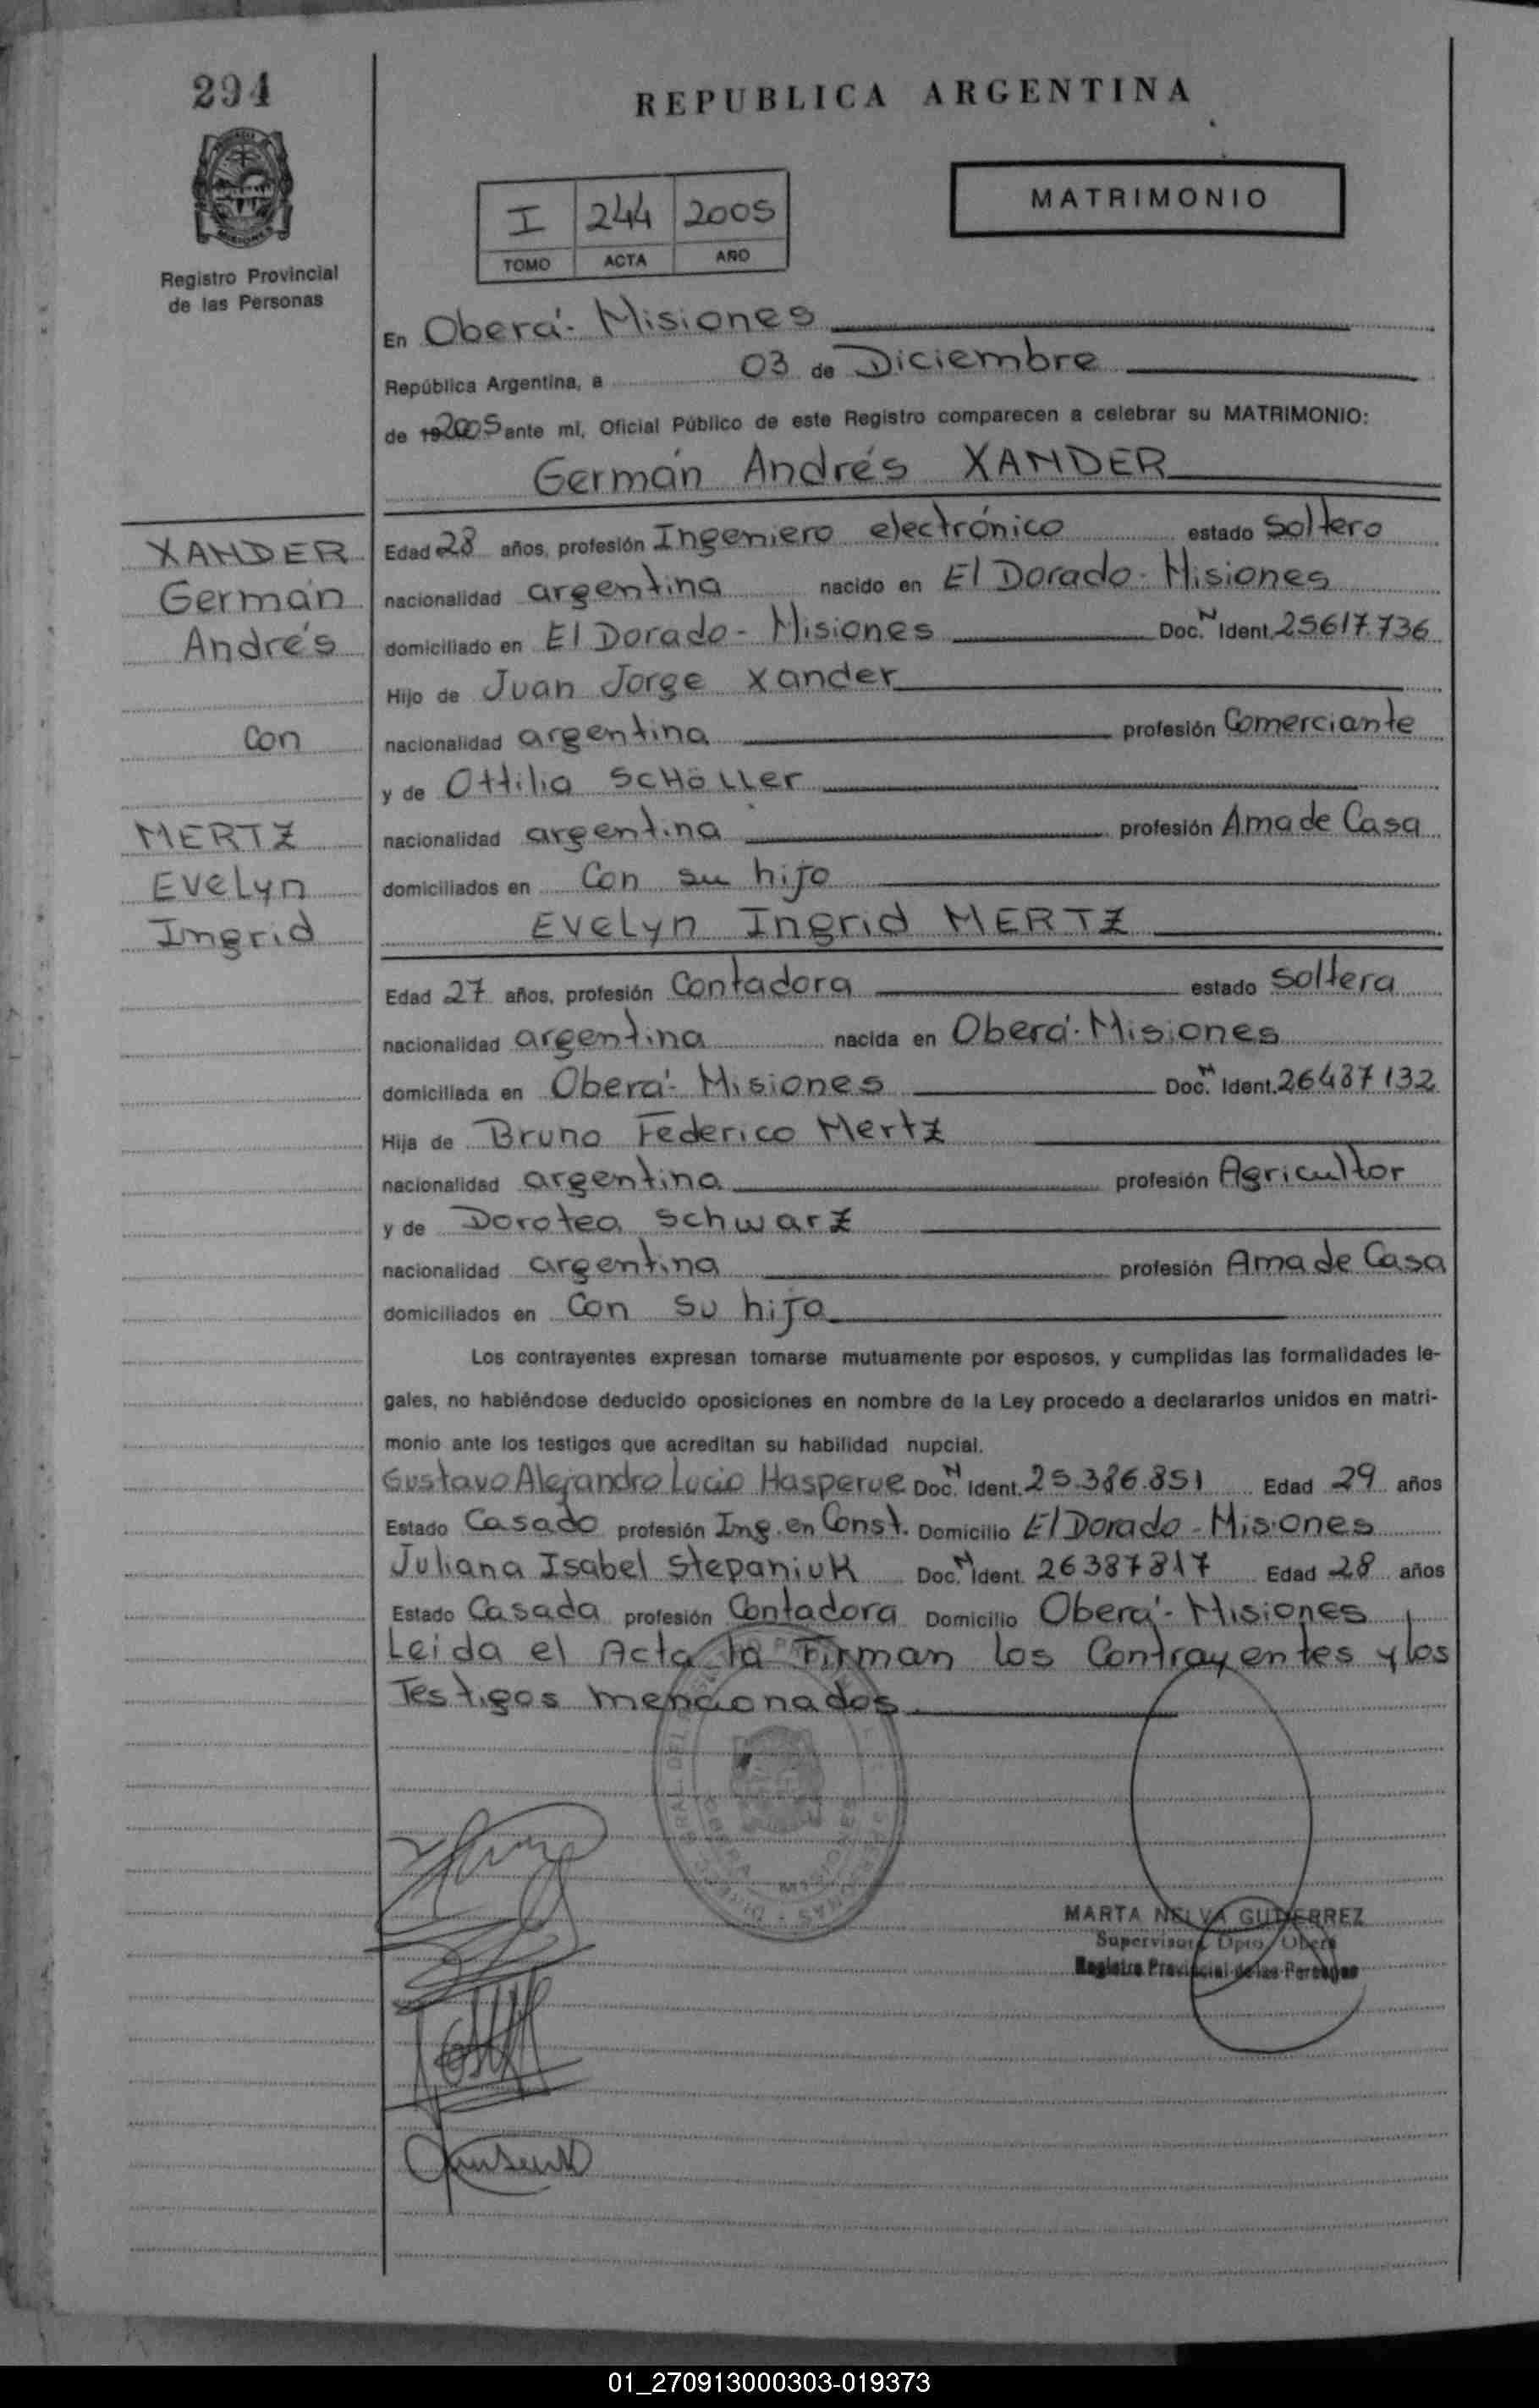 294
REPUBLICA ARGENTINA
MATRIMONIO
I 244 2005
TOMO ACTA AÑO
Registro Provincial
de las Personas
En Oberá - Misiones
República Argentina, a 03 de Diciembre
de 19 2005 ante mí, Oficial Público de este Registro comparecen a celebrar su MATRIMONIO:
Germán Andrés XANDER
XANDER
Germán
Andrés
Con
MERTZ
Evelyn
Ingrid
Edad 28 años, profesión Ingeniero electrónico estado Soltero
nacionalidad argentina nacido en El Dorado - Misiones
domiciliado en El Dorado - Misiones Doc. N Ident. 25617.736
Hijo de Juan Jorge Xander
nacionalidad argentina profesión Comerciante
y de Ottilia SCHÖLLER
nacionalidad argentina profesión Ama de Casa
domiciliados en Con su hijo
Evelyn Ingrid MERTZ
Edad 27 años, profesión Contadora estado Soltera
nacionalidad argentina nacida en Oberá - Misiones
domiciliada en Oberá - Misiones Doc. N Ident. 26487132
Hija de Bruno Federico Mertz
nacionalidad argentina profesión Agricultor
y de Dorotea Schwarz
nacionalidad argentina profesión Ama de Casa
domiciliados en Con su hija
Los contrayentes expresan tomarse mutuamente por esposos, y cumplidas las formalidades le-
gales, no habiéndose deducido oposiciones en nombre de la Ley procedo a declararlos unidos en matri-
monio ante los testigos que acreditan su habilidad nupcial.
Gustavo Alejandro Lucio Hasperue Doc. N Ident. 25.386.851 Edad 29 años
Estado Casado profesión Ing. en Const. Domicilio El Dorado - Misiones
Juliana Isabel Stepaniuk Doc. N Ident. 26387817 Edad 28 años
Estado Casada profesión Contadora Domicilio Oberá - Misiones
Leida el Acta la Firman los Contrayentes y los
Testigos mencionados
MARTA NELVA GUTIERREZ
Supervisora Dpto. Oberá
Registro Provincial de las Personas
01_270913000303-019373